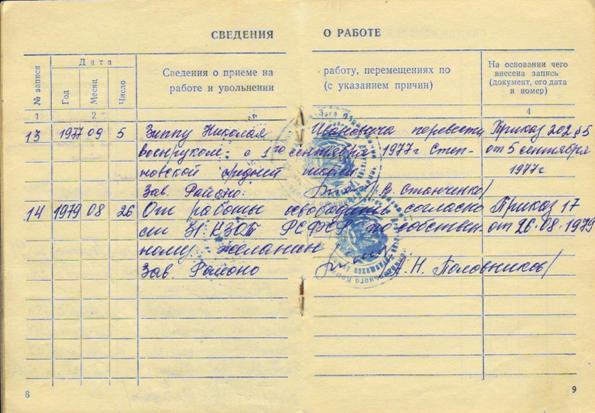 СВЕДЕНИЯ О РАБОТЕ
№ записи
Дата
Год
Месяц
Число
Сведения о приеме на работу, перемещениях по
работе и увольнении (с указанием причин)
На основании чего
внесена запись
(документ, его дата
и номер)
1 2 3 4
13 1977 09 5 Гиппу Николая Ивановича перевести Приказ 202 §5
военруком с 1го сентября 1977г Степ- от 5 сентября
новской средней школы 1977г
Зав. Районо: /В. Станченко/
14 1979 08 26 От работы освободить согласно Приказ 17
ст 31 КЗОТ РСФСР по собствен- от 26.08.1979
ному желанию
Зав. Районо Н. Половников/
8 9